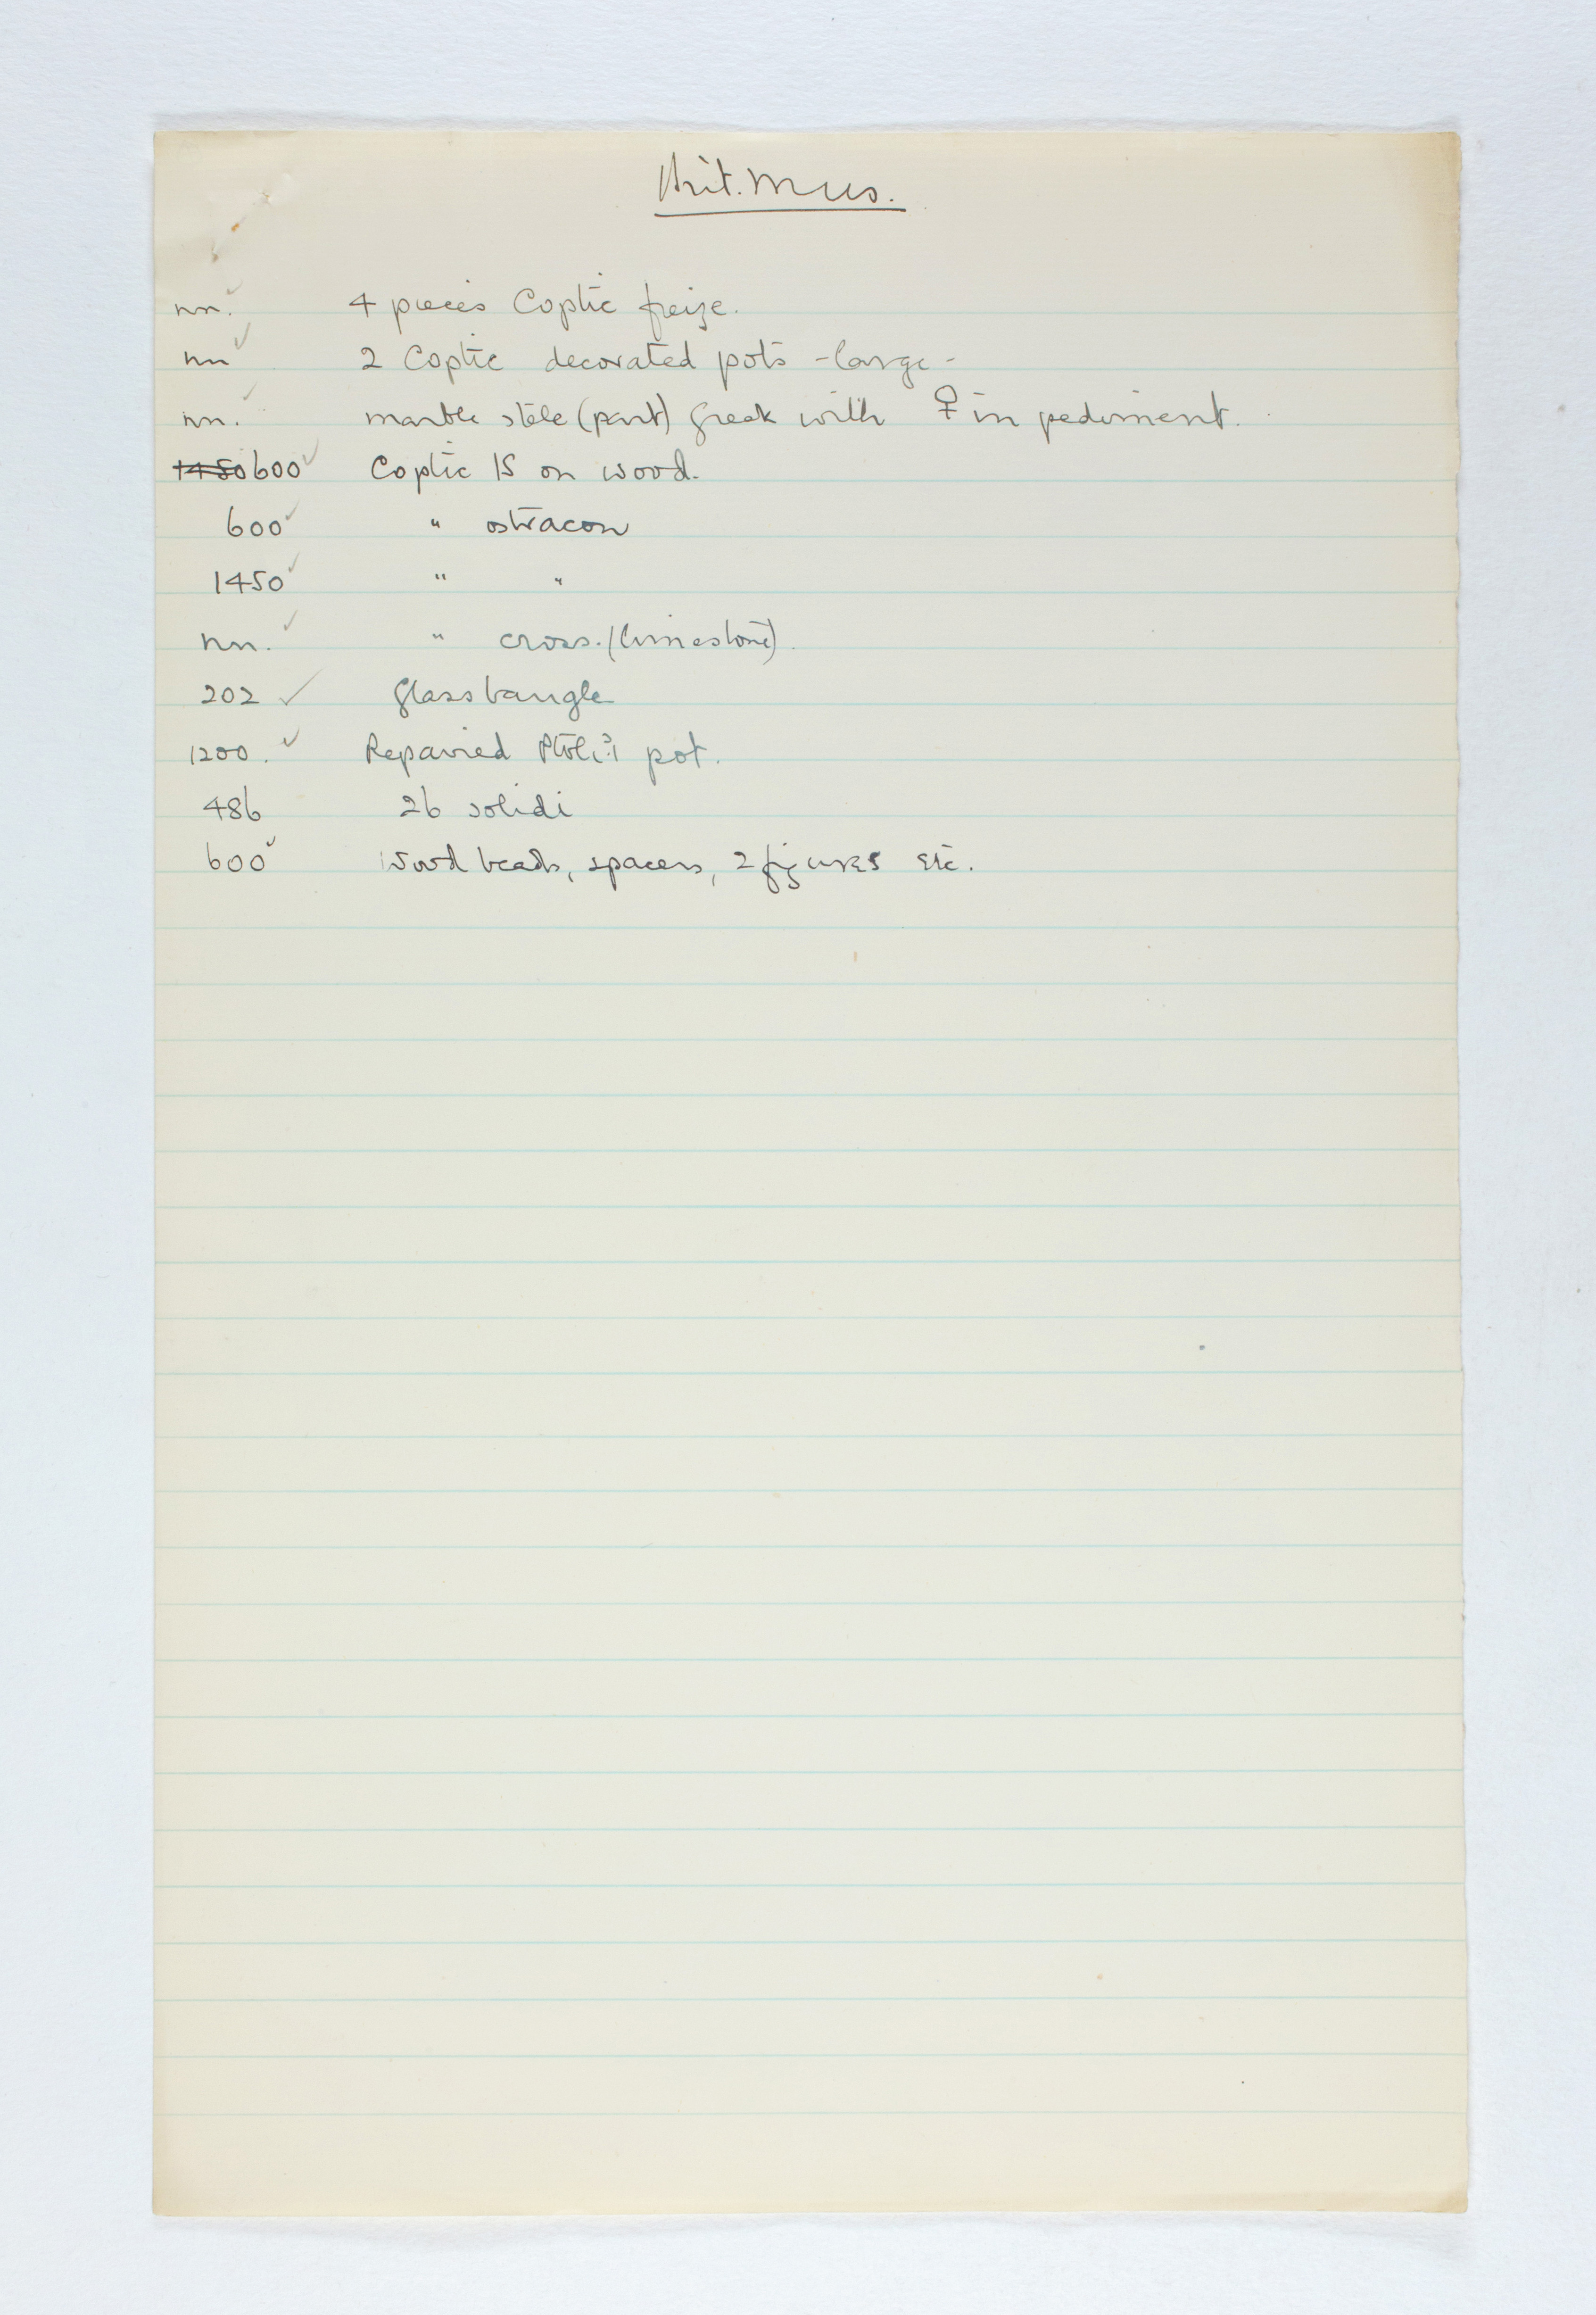 Brit. Mus.
nn. ✓ 4 pieces Coptic freize.
nn ✓ 2 Coptic decorated pots - large -
nn. ✓ marble stele (part) Greek with ♀ in pediment.
1450 600 ✓ Coptic IS on wood.
600 ✓ " ostracon
1450 ✓ " "
nn. ✓ " cross. (limestone).
202 ✓ Glass bangle
1200. ✓ Repaired pot.
486 26 solidi
600 ✓ Wood beads, spacers, 2 figures etc.